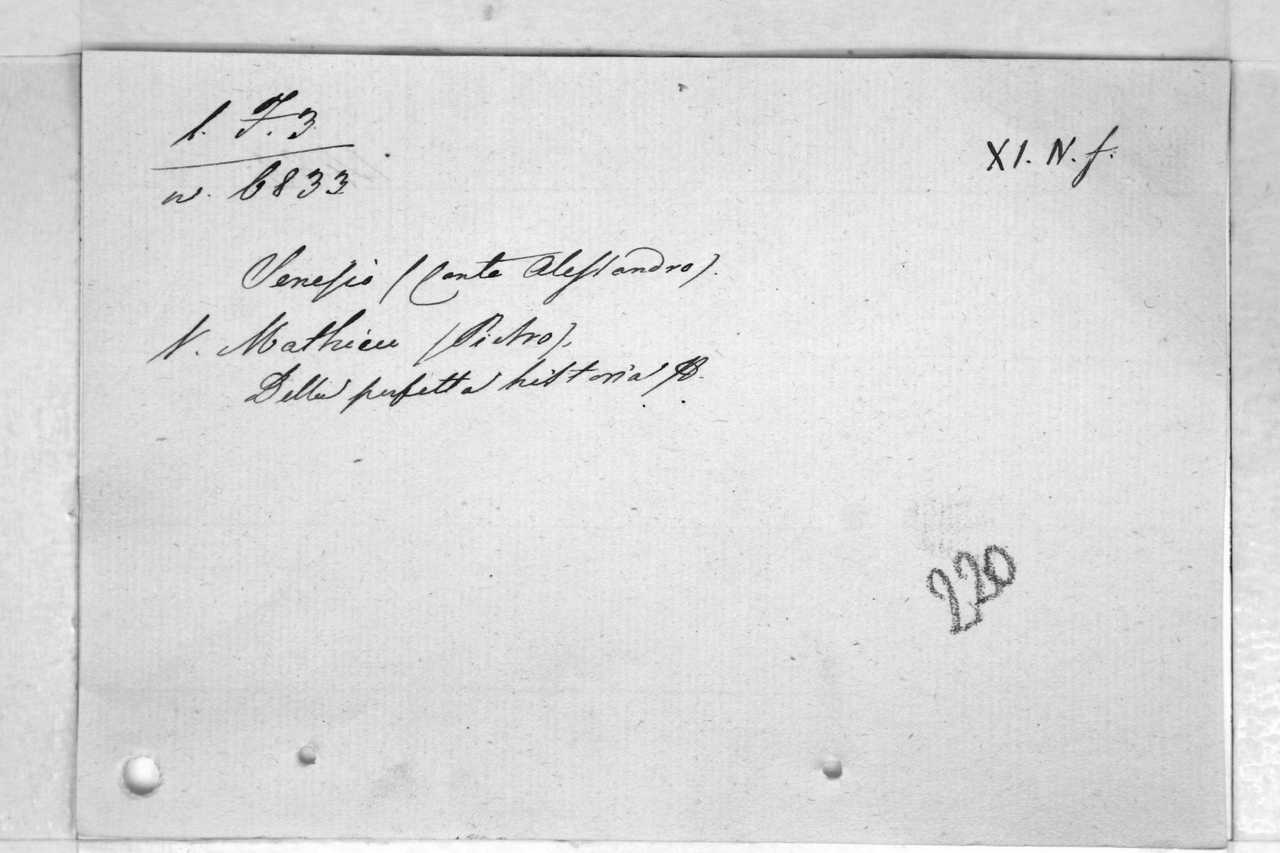 l. F. 3
XI. N. f.
n. 6833
Senesio (Conte Alessandro).
V. Mathieu (Pietro).
Della perfetta historia &.
220